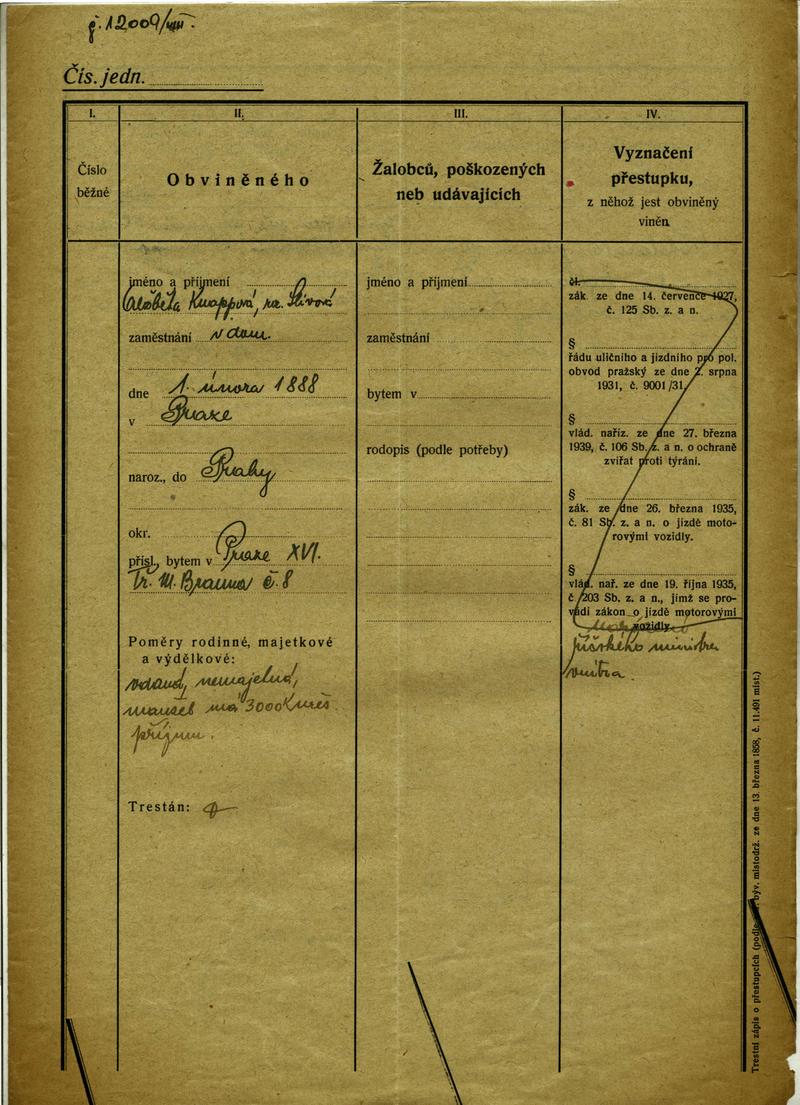 č. 12009/VIII.
Čís. jedn.
I.
Číslo
běžné
II.
Obviněného
jméno a příjmení
Alžběta Knappová, roz.
zaměstnání v dom.
dne 1. února 1888
v Praze
naroz., do Prahy
okr.
přísl., bytem v Praze XVI.
Tř. M. Brauna č. 8
Poměry rodinné, majetkové
a výdělkové:
vdaná, nemajetná,
manžel má 3000 K měs.
příjmu.
Trestán:
III.
Žalobců, poškozených
neb udávajících
jméno a příjmení
zaměstnání
bytem v
rodopis (podle potřeby)
IV.
Vyznačení
přestupku,
z něhož jest obviněný
viněn
čl.
zák. ze dne 14. července 1927,
č. 125 Sb. z. a n.
§
řádu uličního a jízdního pro pol.
obvod pražský ze dne 2. srpna
1931, č. 9001/31.
§
vlád. naříz. ze dne 27. března
1939, č. 106 Sb. z. a n. o ochraně
zvířat proti týrání.
§
zák. ze dne 26. března 1935,
č. 81 Sb. z. a n. o jízdě moto-
rovými vozidly.
§
vlád. nař. ze dne 19. října 1935,
č. 203 Sb. z. a n., jímž se pro-
vádí zákon o jízdě motorovými
vozidly.
říšského ministra
vnitra.
Trestní zápis o přestupcích (podle býv. místodrž. ze dne 13. března 1858, č. 11.491 míst.)